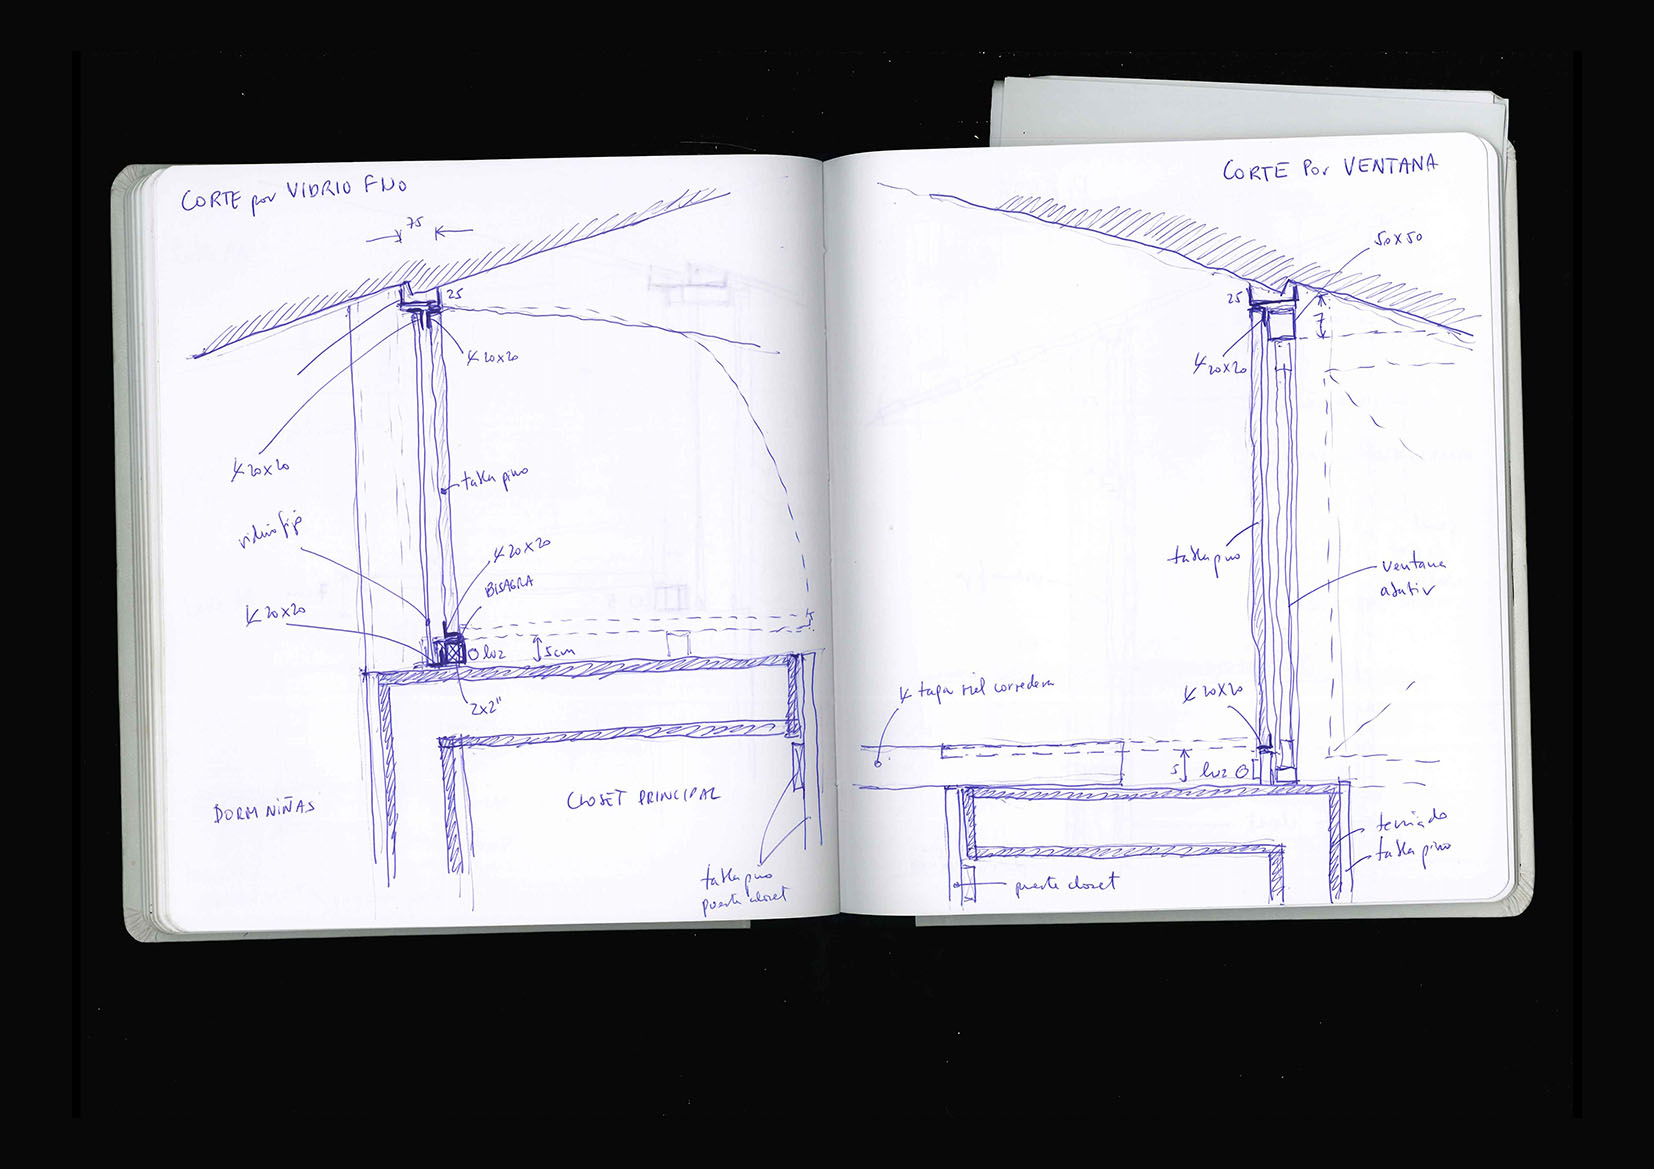 CORTE por VIDRIO FIJO
75
25
∠ 20x20
∠ 20x20
tabla pino
vidrio fijo
∠ 20x20
BISAGRA
∠ 20x20
luz
5cm
2x2"
DORM NIÑAS
CLOSET PRINCIPAL
tabla pino
puerta closet
CORTE POR VENTANA
50x50
25
7
∠ 20x20
tabla pino
ventana
abatir
∠ tapa riel corredera
∠ 20x20
5
luz
terciado
tabla pino
puerta closet